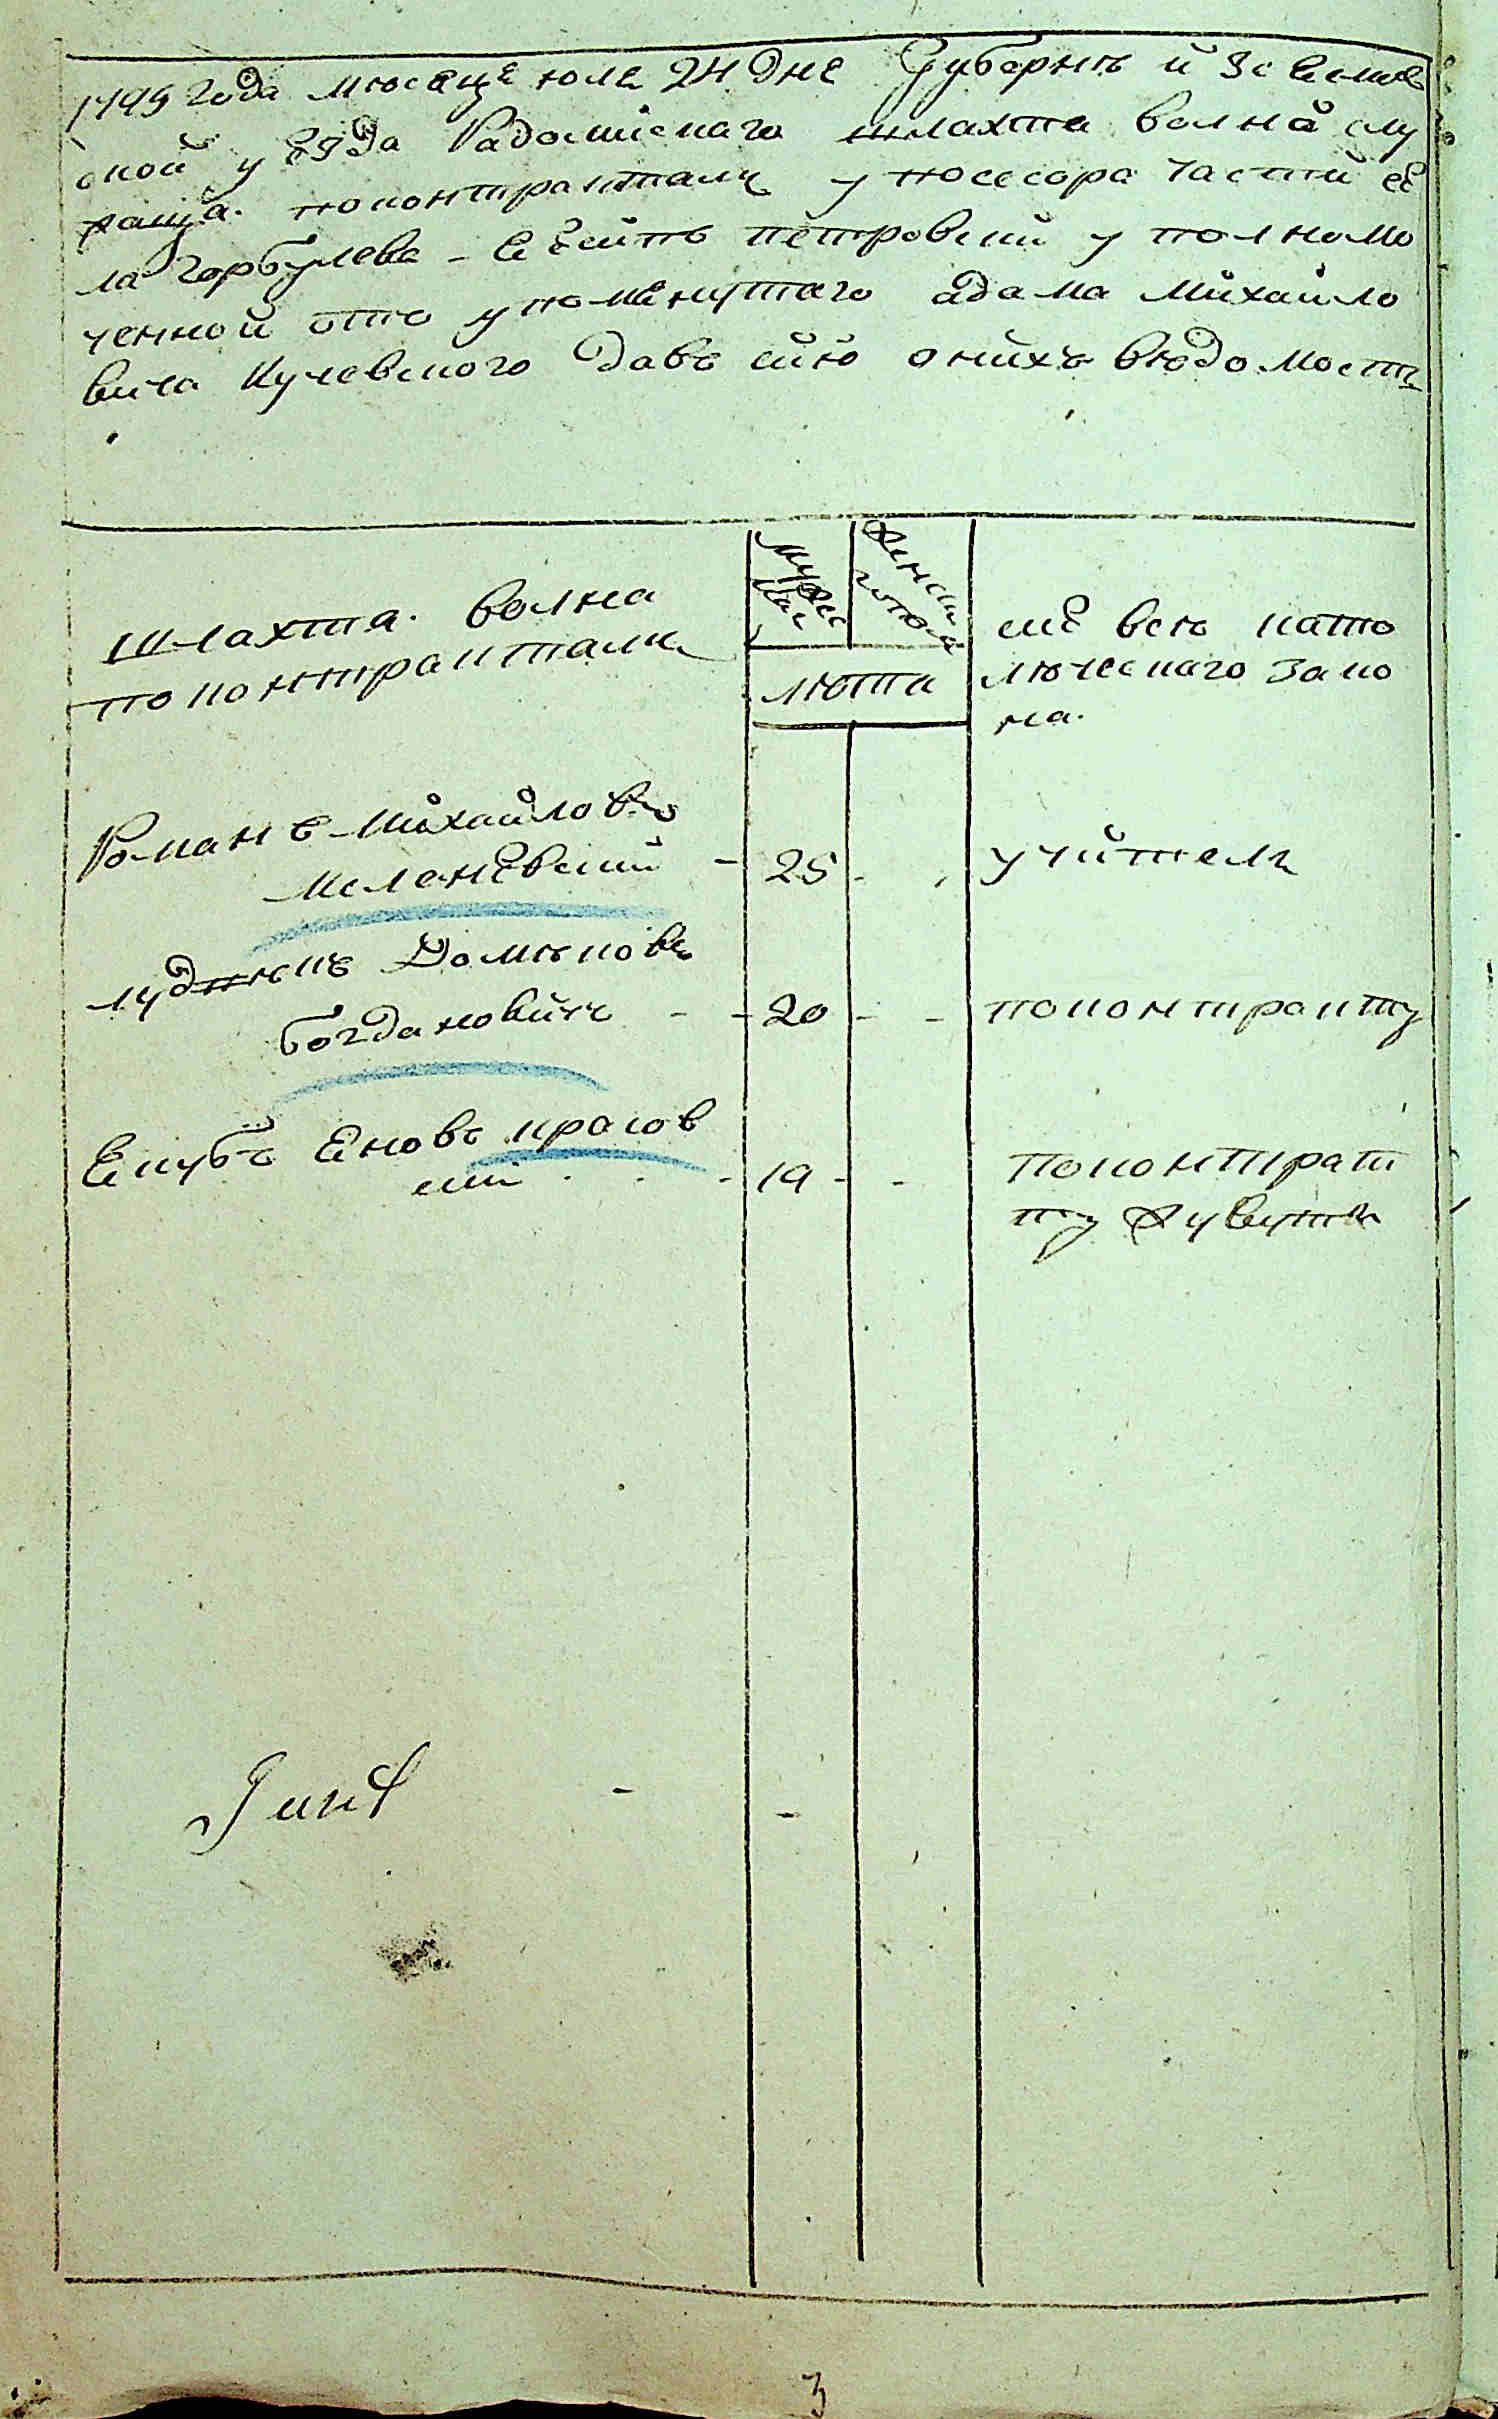 1795 года мѣсяця юля 24 дня Губернѣ иЗяслов
ской уѣзда Радомисмаго шляхта волна слу
жаща. поконтрактамъ упосесора части се
ла Горбулева – Якимъ петровски уполномо
ченной отъ упомянутаго адама михайло
вича Кучевского давъ сию онихъ вѣдомость
шляхта. волна
поконтрактамъ
Мужес
кая
женск
ого пола
лѣта
сие всѣ като
лѣческаго зако
на.
Романъ Михайловъ
Меленевский – 25
учитель
лудвѣкъ Домѣновъ
богдановичъ – – 20 – –
поконтракту
Якубъ Яновъ красов
ски . . – 19 – –
поконтрак
ту живуть
3